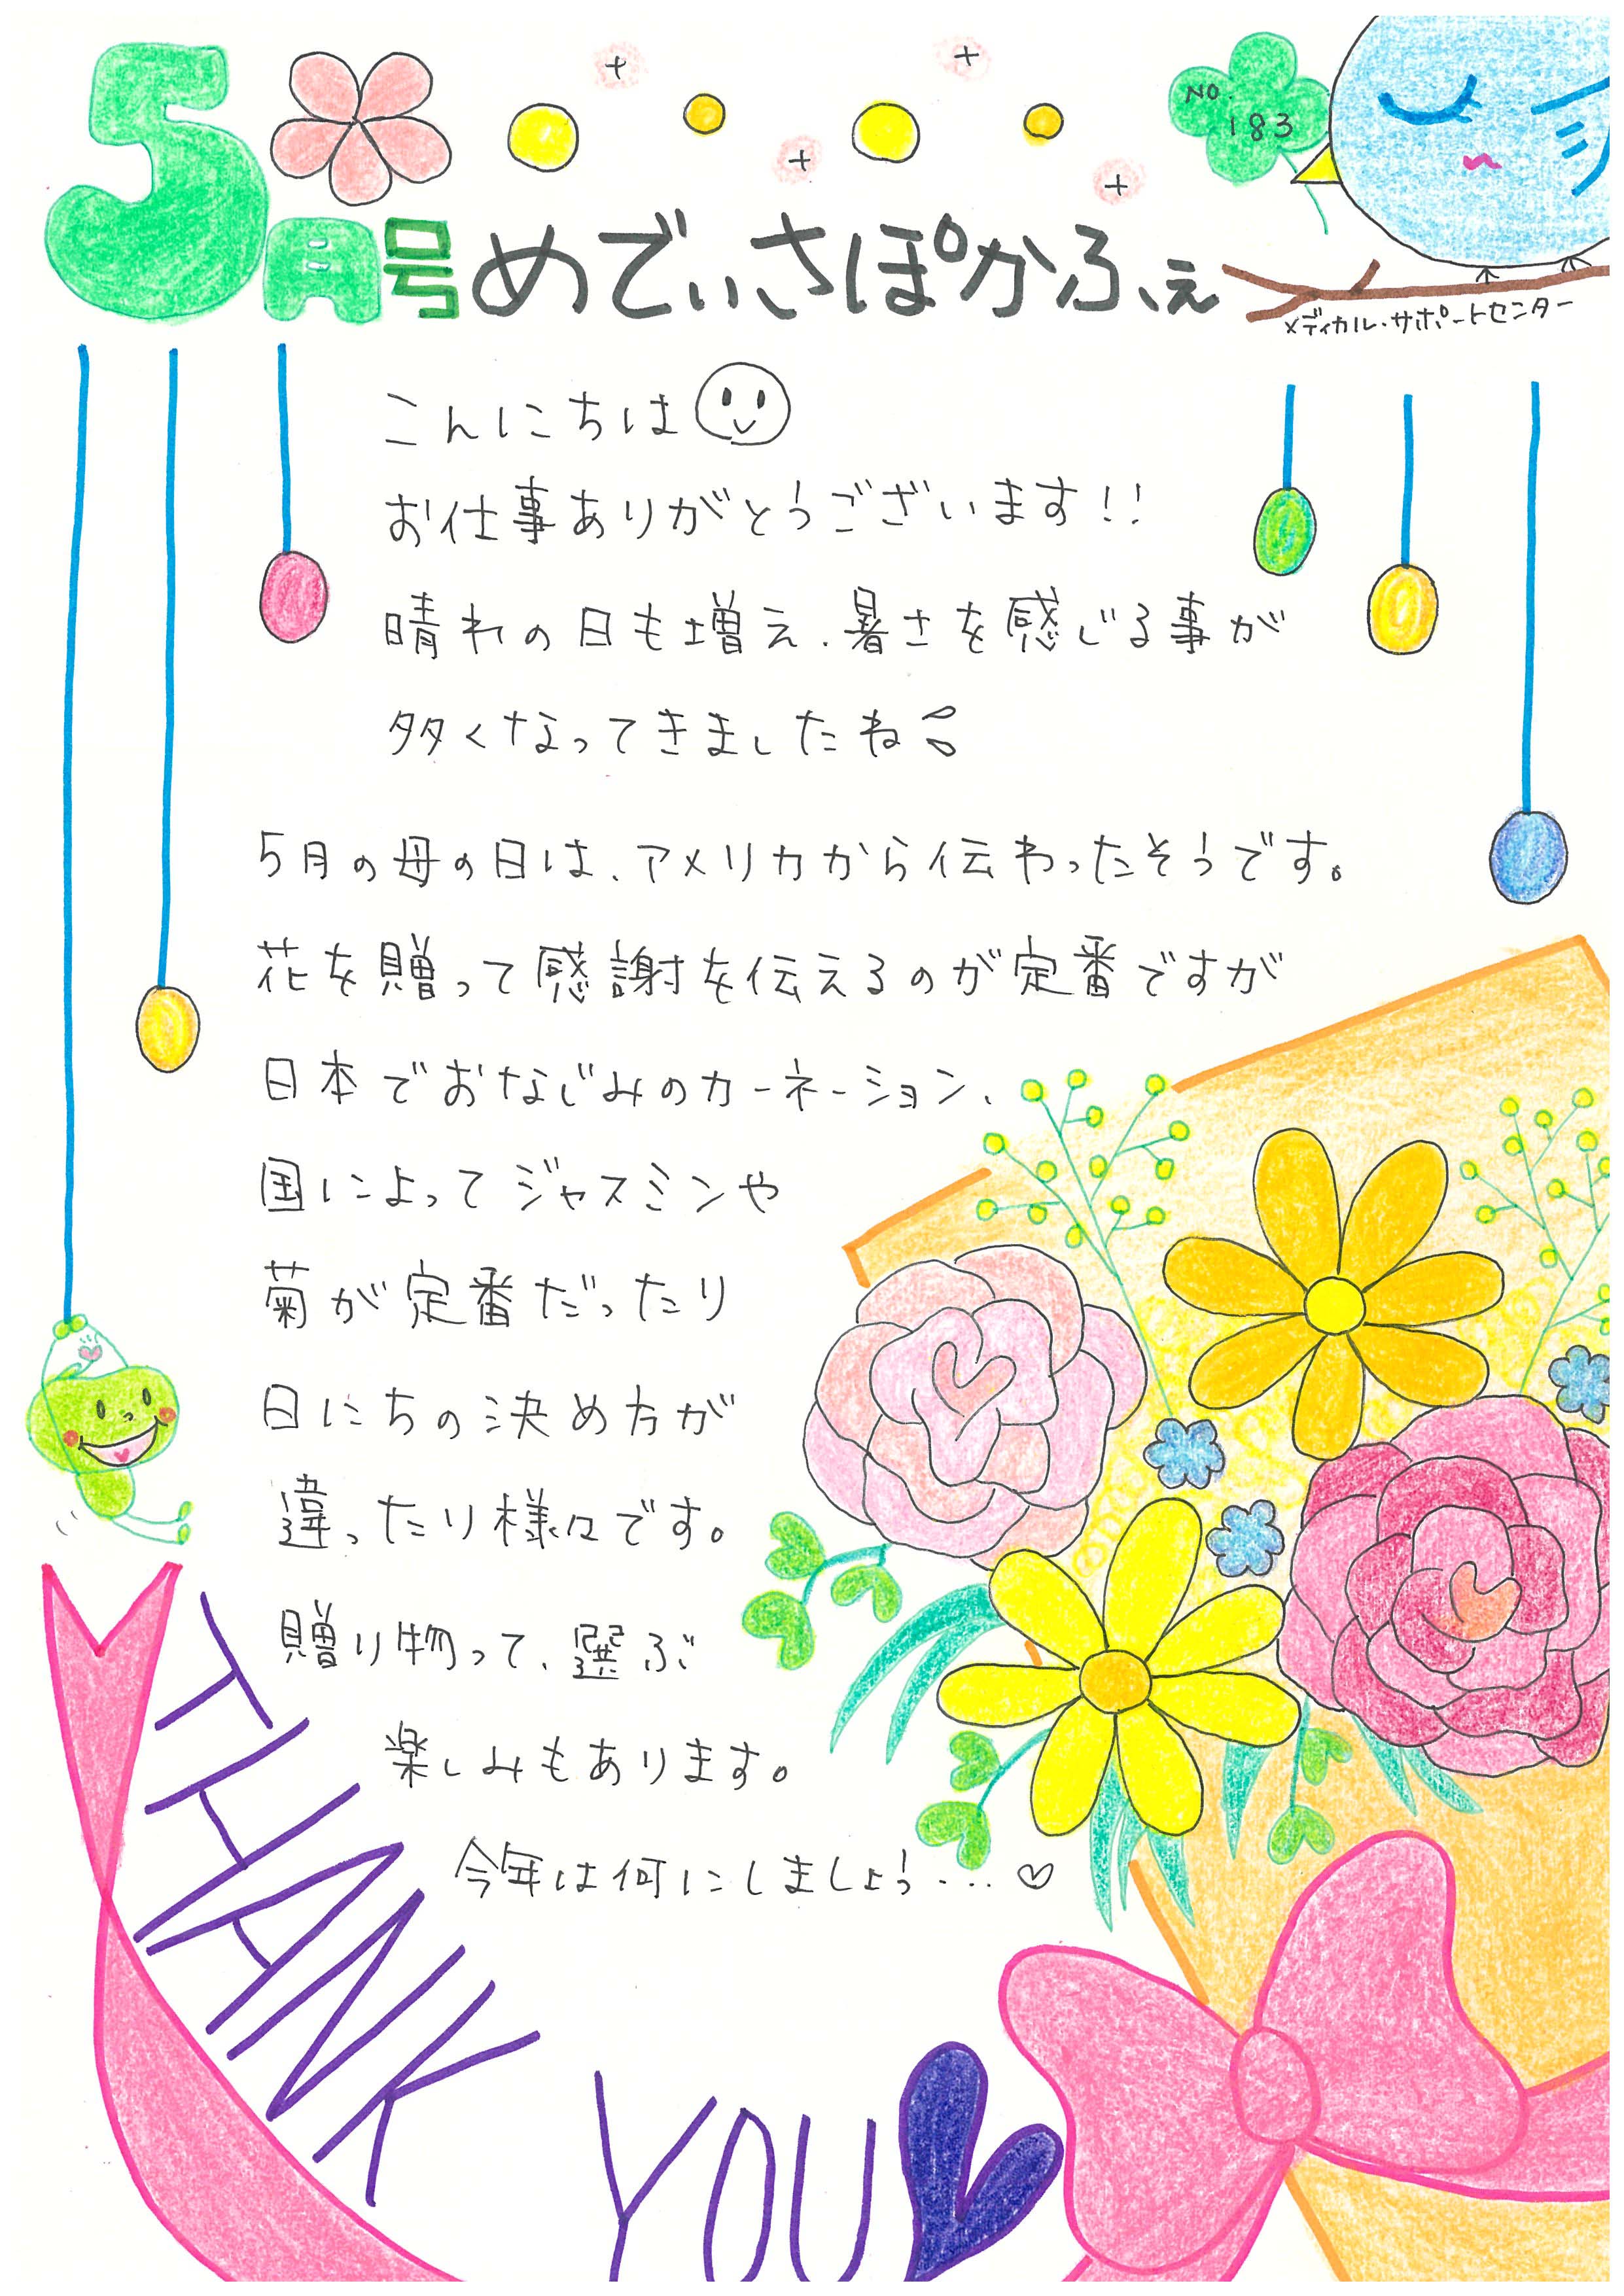 5月号 めでぃさぽかふぇ
NO.
183
メディカル・サポートセンター
こんにちは
お仕事ありがとうございます!!
晴れの日も増え、暑さを感じる事が
多くなってきましたね
5月の母の日は、アメリカから伝わったそうです。
花を贈って感謝を伝えるのが定番ですが
日本でおなじみのカーネーション、
国によってジャスミンや
菊が定番だったり
日にちの決め方が
違ったり様々です。
贈り物って、選ぶ
楽しみもあります。
今年は何にしましょう...♡
THANK
YOU